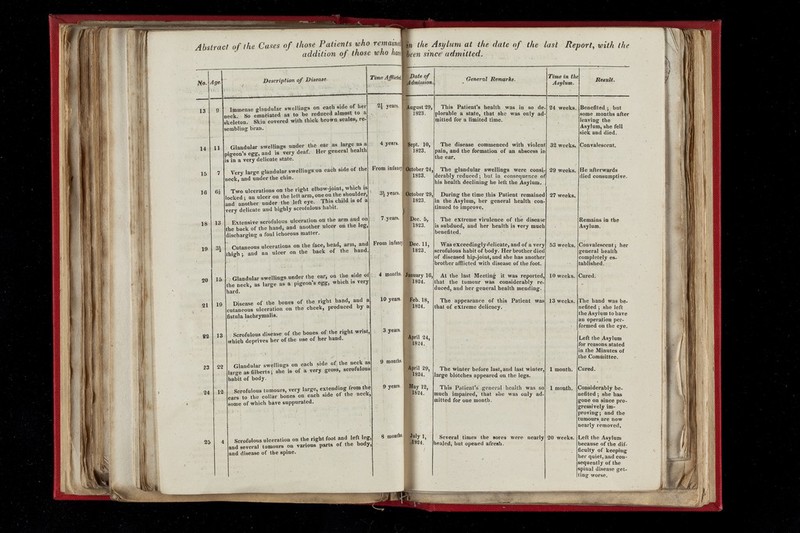 Abstract of the Cases of those Patients who remained in the Asylum at the date of the last Report, with the
addition of those who have been since admitted.
No. Age Description of Disease. Time Afflicted Date of Admission. General Remarks. Time in the Asylum. Result.
13 9 Immense glandular swellings on each side of her
neck. So emaciated as to be reduced almost to a
skeleton. Skin covered with thick brown scales, re-
sembling bran.
2½ years.
August 29,
1823.
This Patient's health was in so de-
plorable a state, that she was only ad-
mitted for a limited time.
24 weeks.
Benefited; but
some months after
leaving the
Asylum, she fell
sick and died.
14 11 Glandular swellings under the ear as large as a
pigeon's egg, and is very deaf. Her general health
is in a very delicate state.
4 years.
Sept. 10,
1823.
The disease commenced with violent
pain, and the formation of an abscess in
the ear.
32 weeks.
Convalescent.
15 7 Very large glandular swellings on each side of the
neck, and under the chin.
From infancy
October 24,
1823.
The glandular swellings were consi-
derably reduced; but in consequence of
his health declining he left the Asylum.
29 weeks.
He afterwards
died consumptive.
16 6½ Two ulcerations on the right elbow-joint, which is
locked; an ulcer on the left arm, one on the shoulder,
and another under the left eye. This child is of a
very delicate and highly scrofulous habit.
3½ years.
October 29,
1823.
During the time this Patient remained
in the Asylum, her general health con-
tinued to improve.
27 weeks.
18 13 Extensive scrofulous ulceration on the arm and on
the back of the hand, and another ulcer on the leg,
discharging a foul ichorous matter.
7 years.
Dec. 5,
1823.
The extreme virulence of the disease
is subdued, and her health is very much
benefited.
Remains in the
Asylum.
19 Cutaneous ulcerations on the face, head, arm, and
thigh; and an ulcer on the back of the hand.
From infancy
Dec. 11,
1823.
Was exceedingly delicate, and of a very
scrofulous habit of body. Her brother died
of diseased hip-joint, and she has another
brother afflicted with disease of the foot.
53 weeks.
Convalescent; her
general health
completely es-
tablished.
20 15 Glandular swellings under the ear, on the side of
the neck, as large as a pigeon's egg, which is very
hard.
4 months.
January 16,
1824.
At the last Meeting it was reported,
that the tumour was considerably re-
duced, and her general health mending.
10 weeks.
Cured.
21 19 Disease of the bones of the right hand, and a
cutaneous ulceration on the cheek, produced by a
fistula lachrymalis.
10 years.
Feb. 18,
1824.
The appearance of this Patient was
that of extreme delicacy.
13 weeks.
The hand was be-
nefited; she left
the Asylum to have
an operation per-
formed on the eye.
22 13 Scrofulous disease of the bones of the right wrist,
which deprives her of the use of her hand.
3 years.
April 24,
1824.
Left the Asylum
for reasons stated
in the Minutes of
the Committee.
23 22 Glandular swellings on each side of the neck as
large as filberts; she is of a very gross, scrofulous
habit of body.
9 months
April 29,
1824.
The winter before last, and last winter,
large blotches appeared on the legs.
1 month.
Cured.
24 12 Scrofulous tumours, very large, extending from the
ears to the collar bones on each side of the neck,
some of which have suppurated.
9 years.
May 12,
1824.
This Patient's general health was so
much impaired, that she was only ad-
mitted for one month.
1 month.
Considerably be-
nefited; she has
gone on since pro-
gressively im-
proving; and the
tumours are now
nearly removed.
25 4 Scrofulous ulceration on the right foot and left leg,
and several tumours on various parts of the body,
and disease of the spine.
8 months
July 1,
1824.
Several times the sores were nearly
healed, but opened afresh.
20 weeks.
Left the Asylum
because of the dif-
ficulty of keeping
her quiet, and con-
sequently of the
spinal disease get-
ting worse.